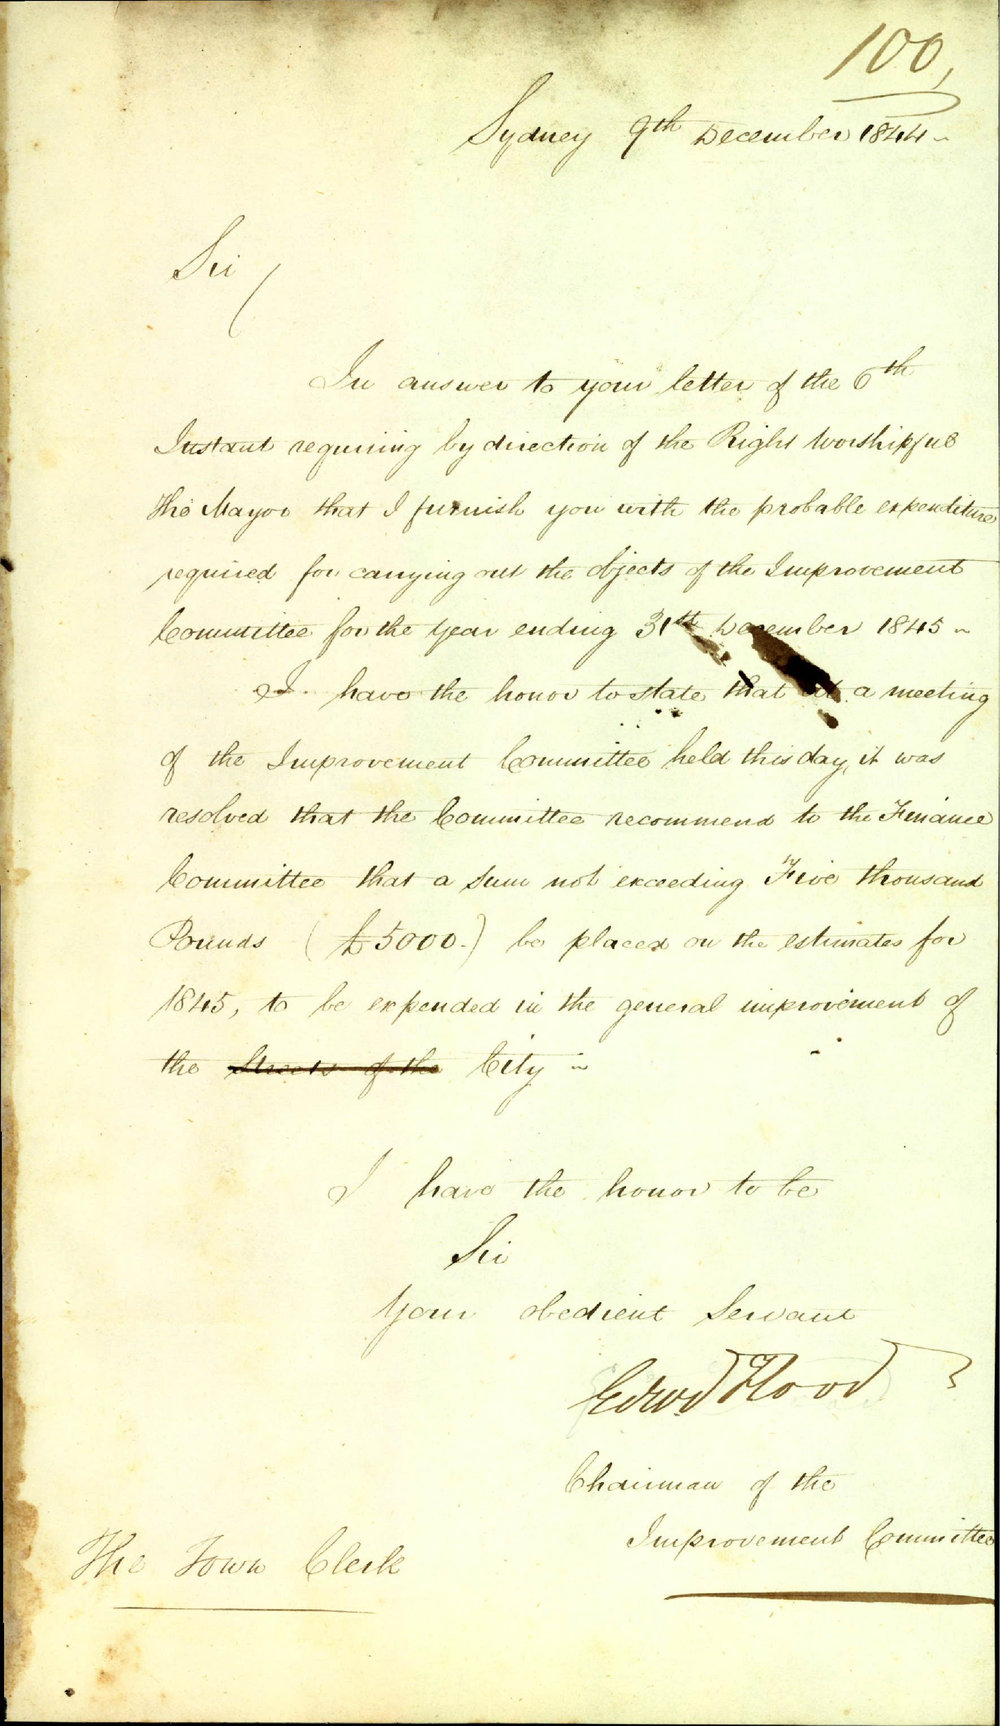 100,
Sydney 9th December 1844
Sir
In answer to your letter of the 6th
Instant requiring by direction of the Right Worshipful
the Mayor that I furnish you with the probable expenditure
required for carrying out the objects of the Improvement
Committee for the Year ending 31st December 1845
I have the honor to state that at a meeting
of the Improvement Committee held this day, it was
resolved that the Committee recommend to the Finance
Committee that a Sum not exceeding Five thousand
Pounds (£5000.) be placed on the estimates for
1845, to be expended in the general improvement of
the Streets of the City
I have the honor to be
Sir
Your obedient Servant
Edwd Flood
Chairman of the
Improvement Committee
The Town Clerk